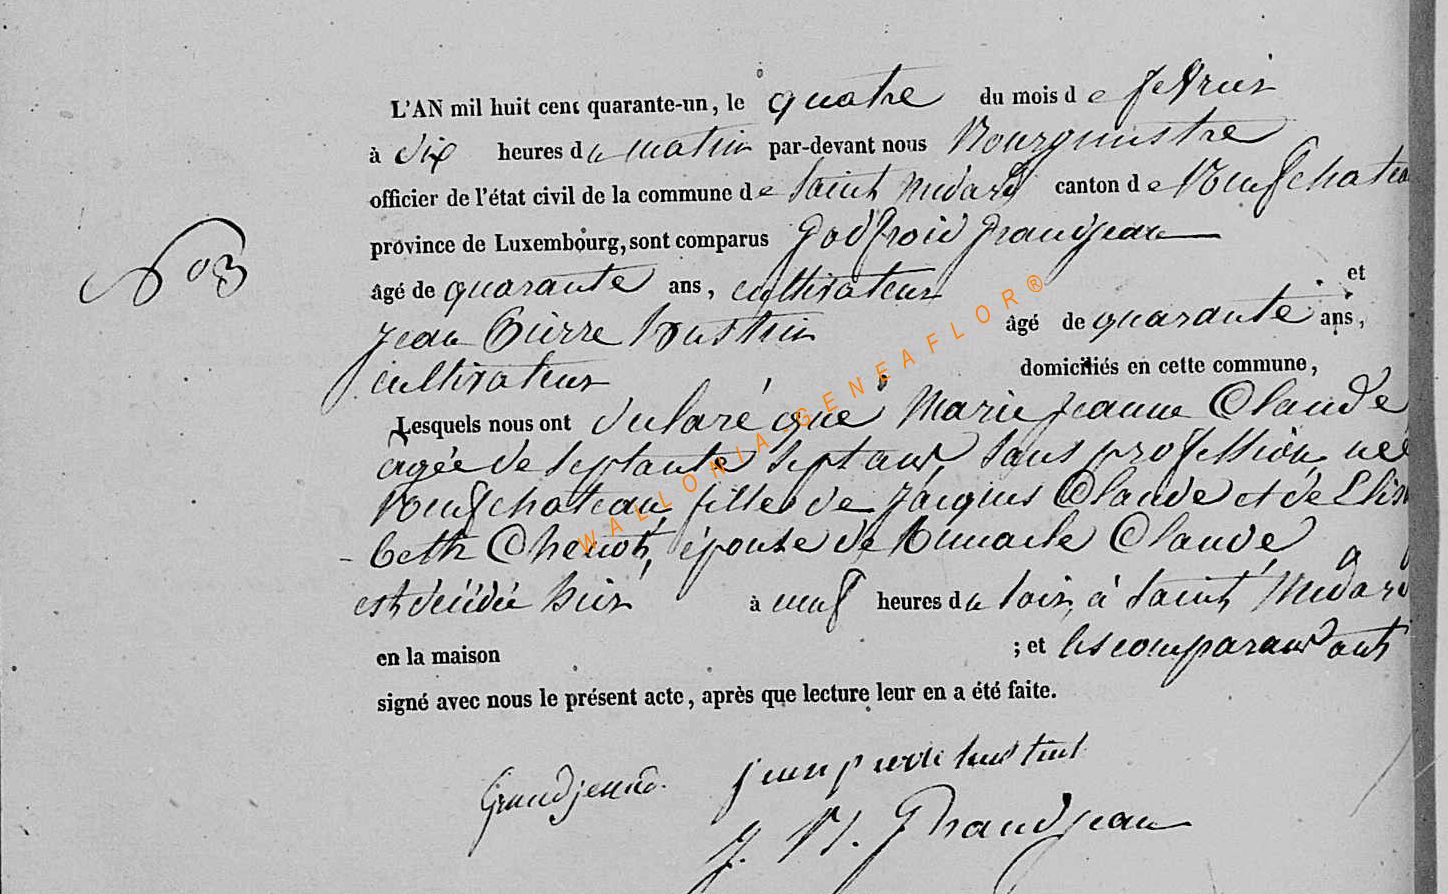 L'AN mil huit cent quarante-un, le quatre du mois de fevrier
à dix heures du matin par-devant nous Bourgmestre
officier de l'état civil de la commune de Saint Medard canton de Neufchateau
province de Luxembourg, sont comparus Godfroid Grandjean
N° 3
âgé de quarante ans, cultivateur et
Jean Pierre Hustin âgé de quarante ans,
cultivateur domiciliés en cette commune,
Lesquels nous ont déclaré que Marie Jeanne Claude
agée de septante sept ans, sans profession, née
Neufchateau, fille de Jacques Claude et de Elisa
-beth Chenot, épouse de Claude
est décédée hier à neuf heures du soir, à Saint Medard
en la maison ; et les comparans ont
signé avec nous le présent acte, après que lecture leur en a été faite.
Grandjean jean pierre hustin
J. Grandjean
WALLONIA-GENEAFLOR®